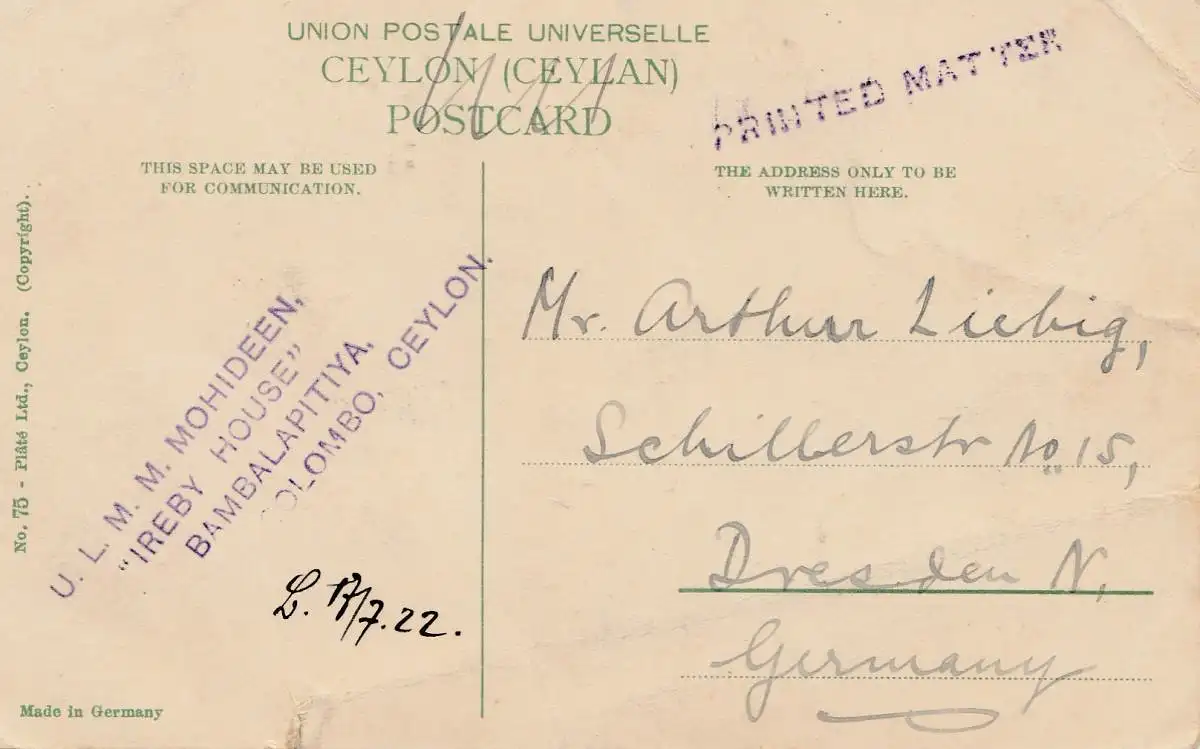 UNION POSTALE UNIVERSELLE
CEYLON (CEYLAN)
POSTCARD
PRINTED MATTER
THIS SPACE MAY BE USED
FOR COMMUNICATION.
THE ADDRESS ONLY TO BE
WRITTEN HERE.
No. 75 - Plâté Ltd., Ceylon. (Copyright).
U. L. M. M. MOHIDEEN,
"IREBY HOUSE"
BAMBALAPITIYA,
COLOMBO, CEYLON.
17/7.22.
Mr. Arthur Liebig,
Schillerstr No 15,
Dresden N,
Germany
Made in Germany